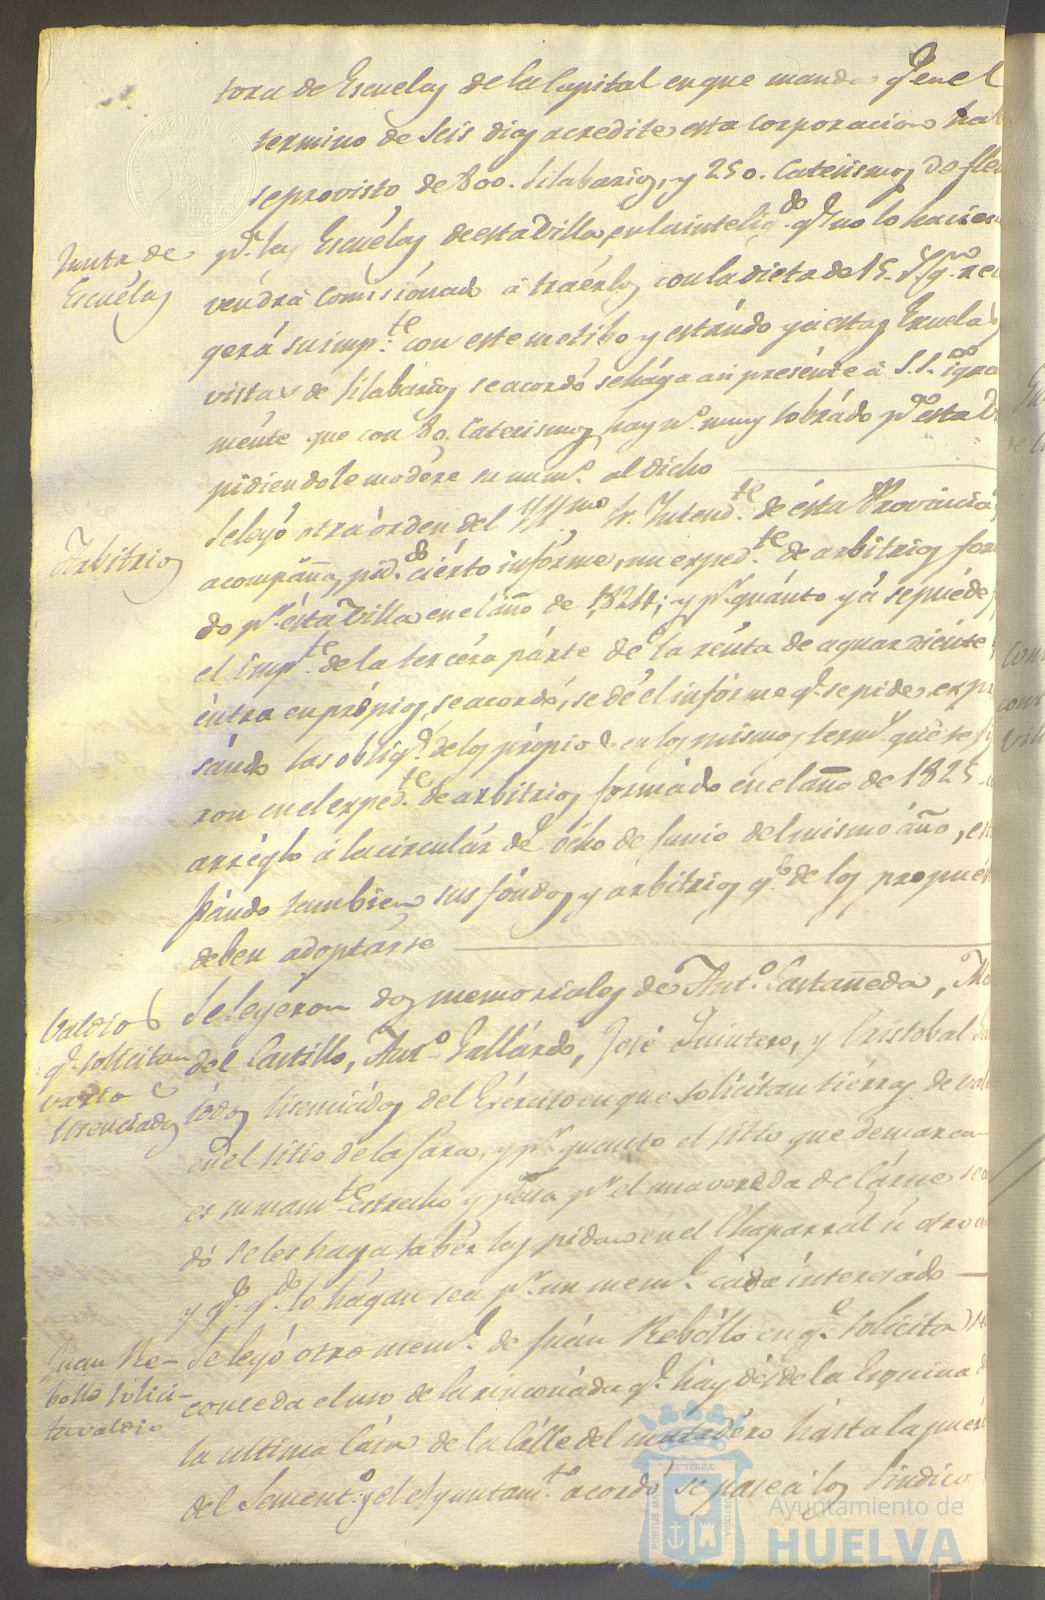 tora de Escuelas de la Capital en que manda q.e en el
termino de seis dias acredite esta Corporacion hab
se provisto de 800. Silabarios, y 250. Catecismos de Fleu
Junta de
Escuelas
p.a las Escuélas de esta Villa, en la intelig.a q.e no lo hacien.do
vendrá comisionado á traérlos con la dieta de 15. r.s q.n reco
gerá su imp.te con este motibo y estándo yá estas Escuelas
vistas de Silabarios se acordó se hága asi presénte á S.S. igual
ménte que con 80. Catecismos hay n.o muy sobrádo p.a esta V
pidiendole modére su num.o al dicho
Arbitrios
Se leyó otra órden del Yll.mo Sr. Intend.te de ésta Província
acompaña, pid.do ciérto infórme, un exped.te de arbitrios for
do p.r ésta Villa en el año de 1824; y p.r quánto yá se puéde
el imp.te de la tercéra párte de la rénta de aguardiénte
éntra en própios, se acordó, se dé el infórme q.e se pide, expre
sándo las oblig.s de los própios en los mismos term.s que se hi
ron en el exped.te de arbitrios formádo en el año de 1825
arréglo á la circulár de ócho de Junio del mismo año, es
pándo tambien sus fóndos y arbitrios q.e de los propués
deben adoptárse
Valdíos
q.e solicitan
vários
licenciados
Se leyéron dos memoriales de Ant.o Castañeda, Ma
del Castillo, Ant.o Gallárdo, José Quintero, y Cristobal
tódos licenciádos del Exército en que solicitan tiérras de val
en el sitio de la , y p.r quanto el sitio que demarcan
es sumam.te estrecho y pása p.r el una veréda de Cárne, se acor
dó se les haga sabér las pidan en el Chaparrál ú otro
y q.e q.do lo hágan sea p.r un mem.l cáda interesádo
Juan Re-
bollo solici-
ta valdío
Se leyó otro mem.l de Juán Rebóllo en q.e solicita se
conceda el uso de la rinconáda q.e háy désde la Esquina d
la ultima Cása de la Cálle del matadéro hásta la puér
del Sement.o y el Ayuntam.to acordó se pase á los Síndico
PORTUS MARIS
ET TERRAE
CUSTODIA
Ayuntamiento de
HUELVA